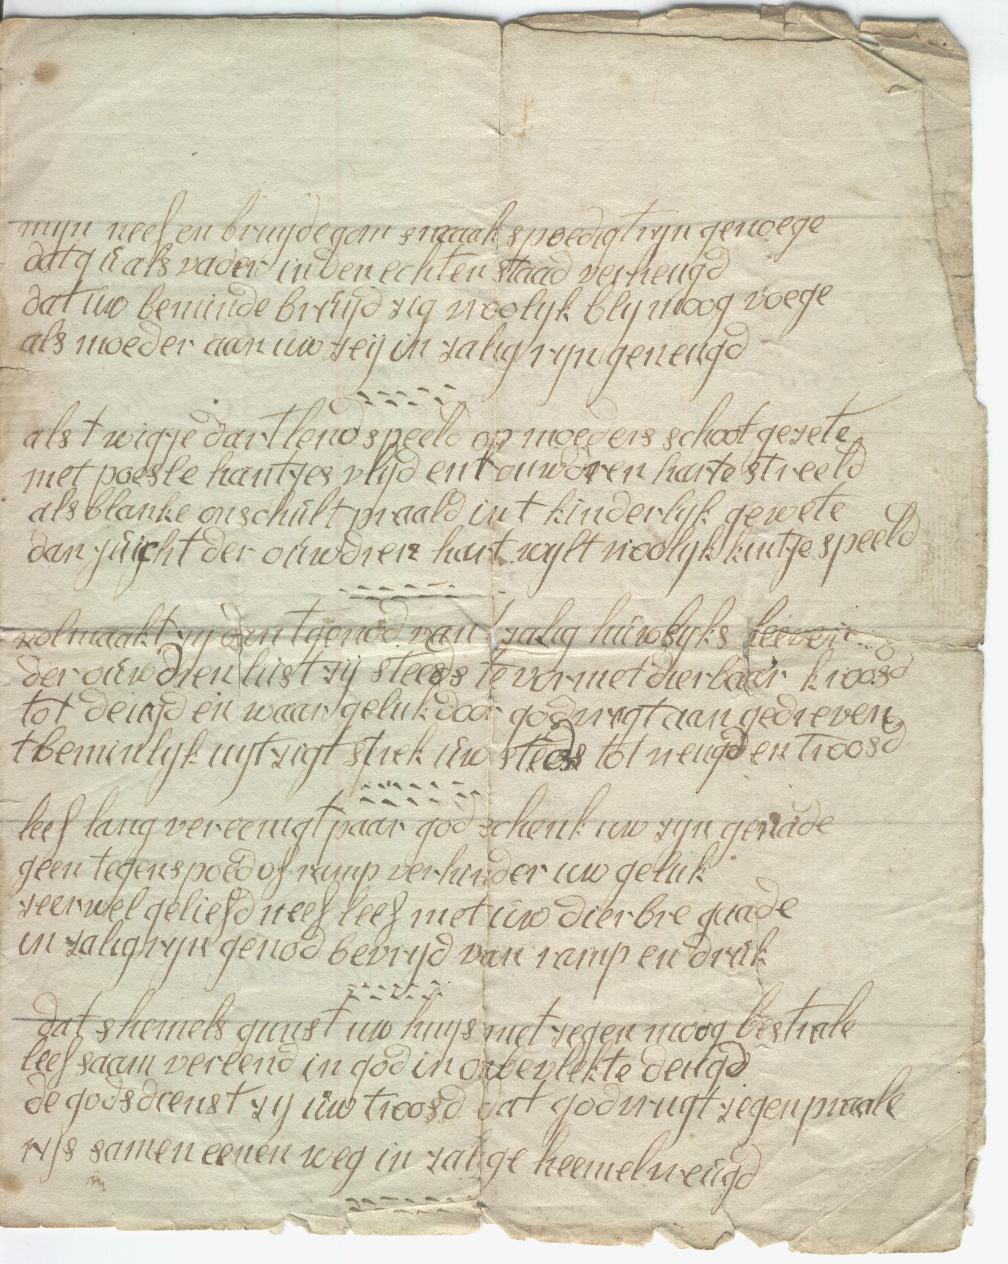 mijn neef en bruijdegom smaak spoedigt zijn genoege
dat gu als vader in den echten staad verheugd
dat uw beminde bruijd zig vroolijk blij moog voege
als moeder aan uw zeij in zalig zijn geneugd
als t wigje dartlend speeld op moeders schoot gezete
met poesle hantjes vlijd en t ouwdren harte streeld
als blanke onschult praald in t kinderlijk gewete
dan juicht der ouwdren hart wijlt vroolijk kintje speeld
volmaakt zij dan t genod van t zalig huwlijks leeven
der ouwdren lust zij steeds te vormet dierbaar kroosd
tot deugd en waar geluk door godvrugt aan gedreven
t beminlijk uijtzigt strek uw steeds tot vreugd en troosd
leef lang vereenigt paar god schenk uw zijn genade
geen tegenspoed of ramp verhinder uw geluk
zeer wel geliefd neef leef met uw dierbre gaade
in zaligzijn genod bevrijd van ramp en druk
dat shemels gunst uw huijs met zegen moog bestrale
leef saam vereend in god in onbevlekte deugd
de godsdienst zij uw troosd dat godvrugt zegenpraale
wijs samen eenen weg in zalige heemelvreugd